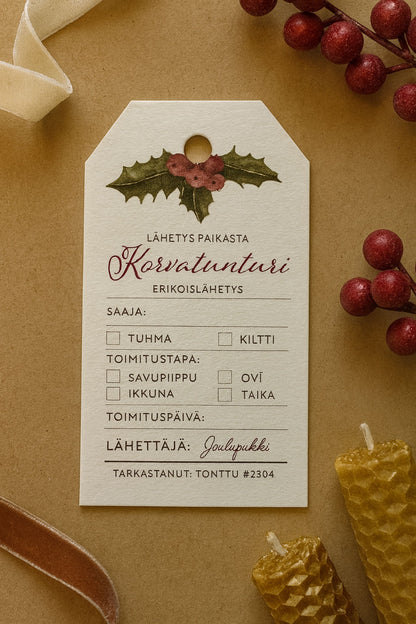 LÄHETYS PAIKASTA
Korvatunturi
ERIKOISLÄHETYS
SAAJA:
TUHMA KILTTI
TOIMITUSTAPA:
SAVUPIIPPU OVĪ
IKKUNA TAIKA
TOIMITUSPÄIVÄ:
LÄHETTÄJÄ: Joulupukki
TARKASTANUT: TONTTU #2304